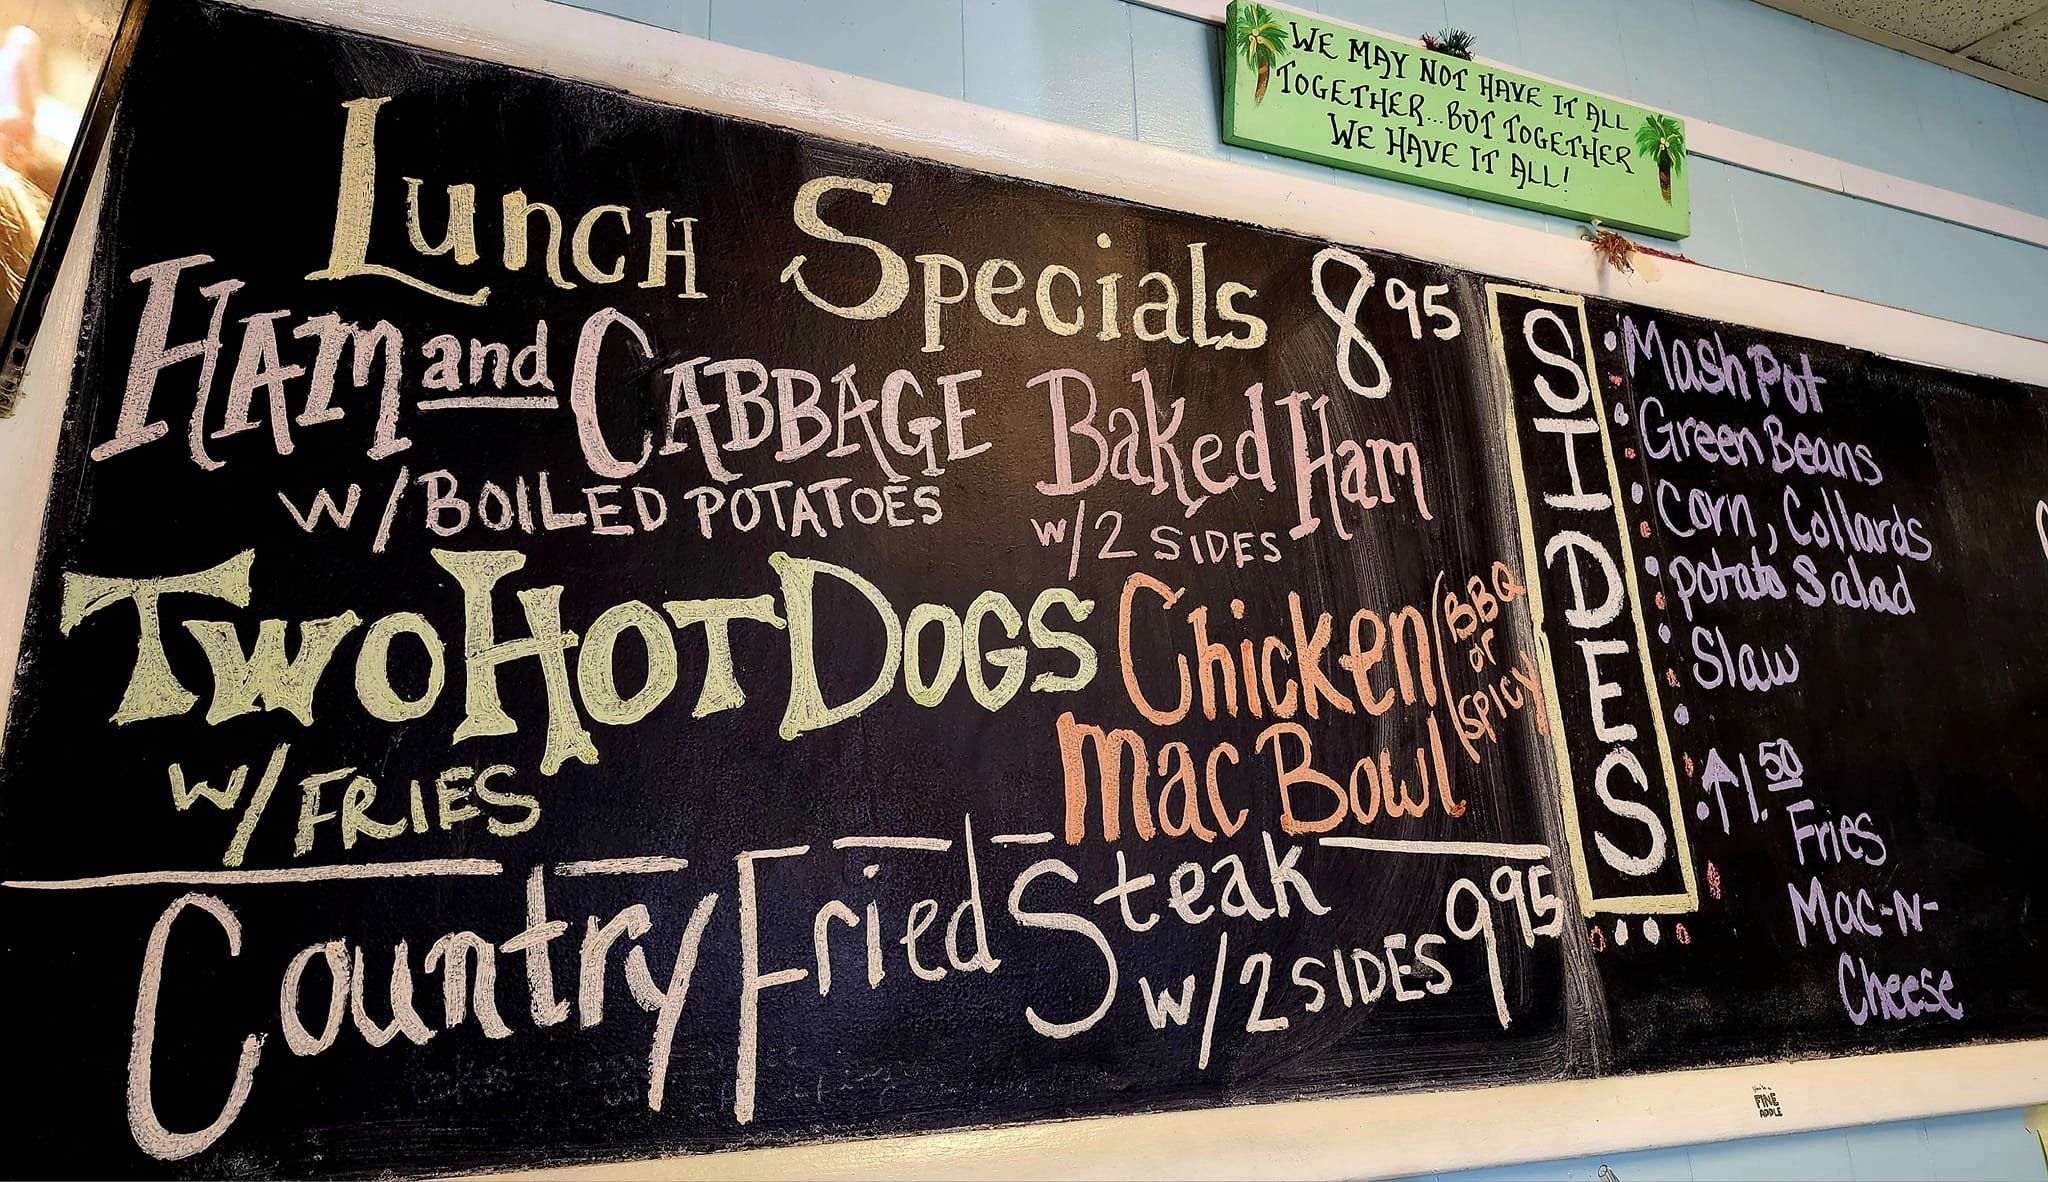 WE MAY NOT HAVE IT ALL
TOGETHER...BUT TOGETHER
WE HAVE IT ALL!
Lunch Specials 8 95
HAM and CABBAGE
W/BOILED POTATOES
Baked Ham
W/2 SIDES
Two Hot Dogs
W/FRIES
Chicken
Mac Bowl
(BBQ
or
SPICY)
Country Fried Steak
W/2 SIDES 9 95
SIDES
Mash Pot
Green Beans
Corn, Collards
Potato Salad
Slaw
↑1.50
Fries
Mac-N-
Cheese
FINE